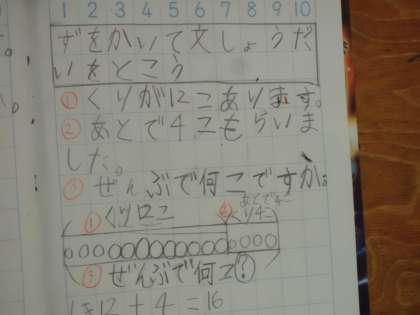 1 2 3 4 5 6 7 8 9 10
ずをかいて文しょうだ
いをとこう
① くりが12こあります。
② あとで4こもらいま
した。
③ ぜんぶで何こですか。
① くり12こ
② あとで くり4こ
③ ぜんぶで何こ?
しき12+4=16